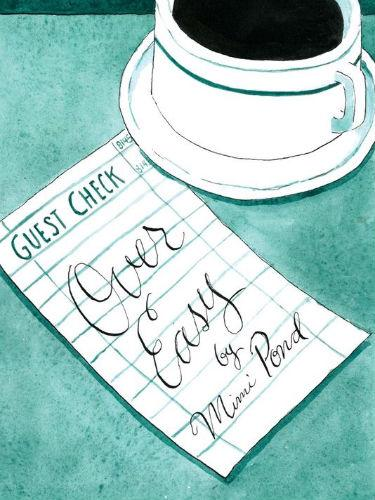 GUEST CHECK
Over
Easy
by
Mimi Pond